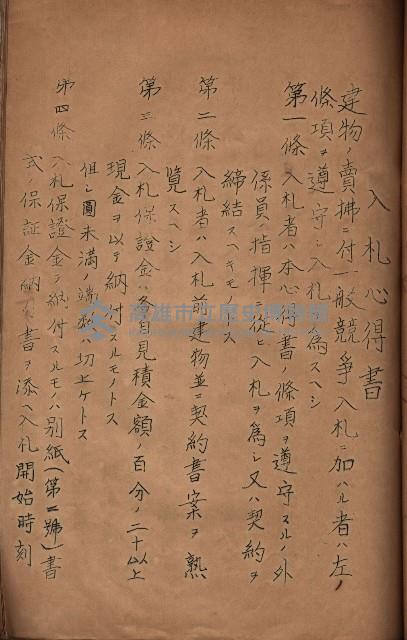 入札心得書
建物ノ賣拂ニ付一般競爭入札ニ加ハル者ハ左ノ
條項ヲ遵守シ入札ヲ為スヘシ
第一條 入札者ハ本心得書ノ條項ヲ遵守スルノ外
係員ノ指揮ニ従ヒ入札ヲ為シ又ハ契約ヲ
締結スヘキモノトス
第二條 入札者ハ入札前建物並ニ契約書案ヲ熟
覽スヘシ
第三條 入札保證金ハ各自見積金額ノ百分ノ二十以上
現金ヲ以テ納付スルモノトス
但シ圓未満端数ハ切上ケトス
第四條 入札保證金ヲ納付スルモノハ別紙(第一號)書
式ノ保証金納付書ヲ添ヘ入札開始時刻
高雄市立歷史博物館